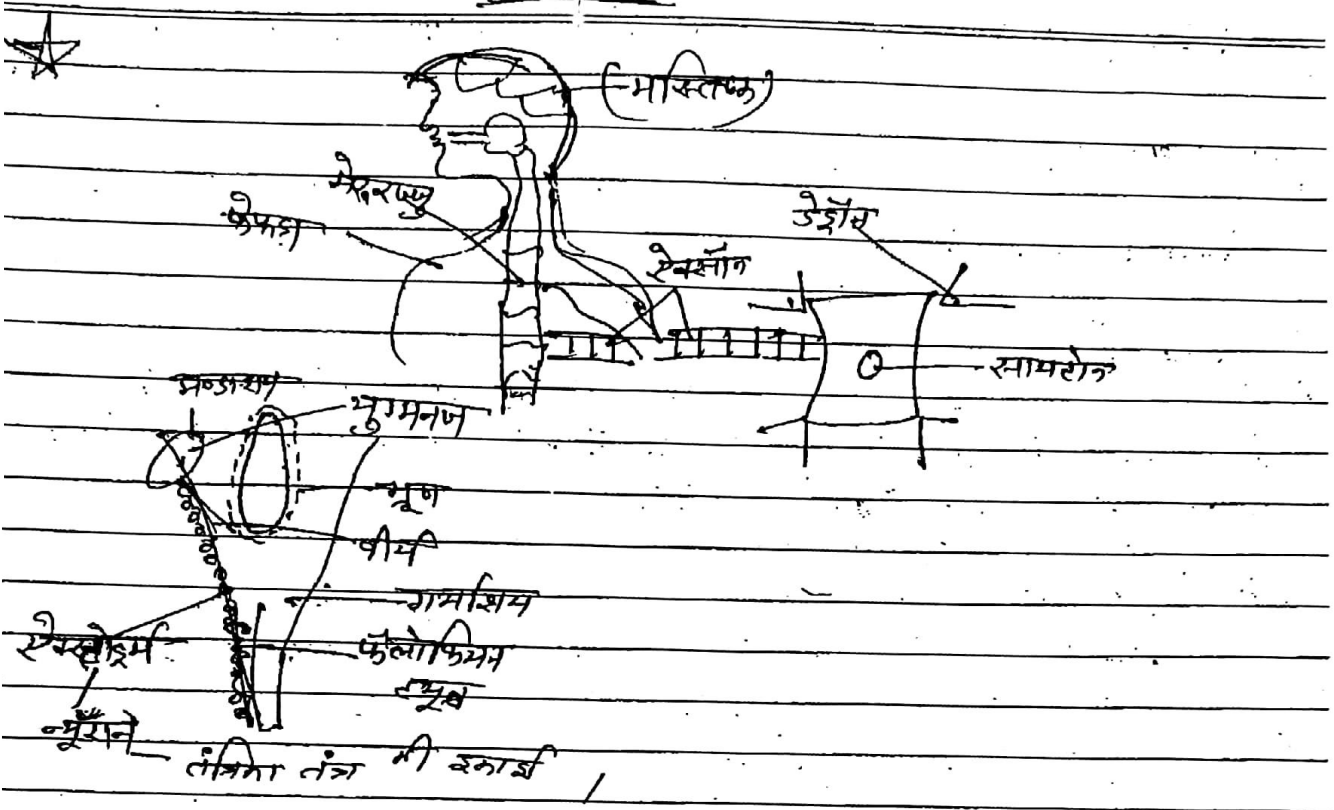 (मस्तिष्क)
मेरूरज्जु
फेफड़ा
डेड्रॉन
ऐक्सॉन
सायटोन
अण्डाशय
युग्मनज
भ्रूण
वीर्य
गर्भाशय
ऐक्टोडर्म
फैलोपियन
ट्यूब
न्यूरॉन
तंत्रिका तंत्र की इकाई